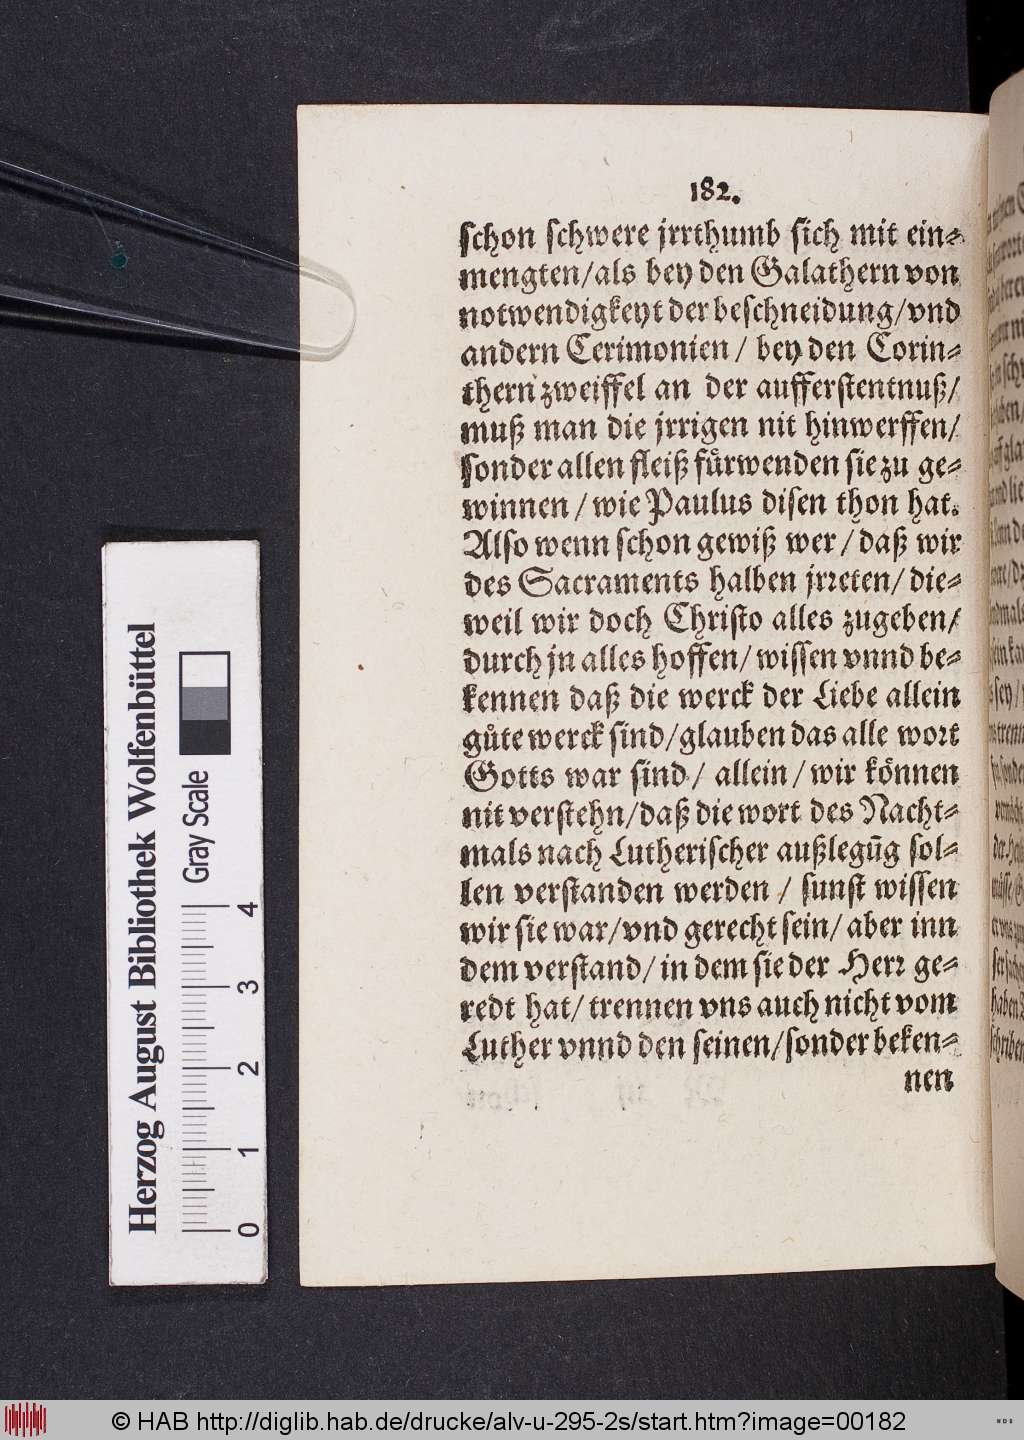 182.
schon schwere jrrthumb sich mit ein⸗
mengten/als bey den Galathern von
notwendigkeyt der beschneidung/vnd
andern Cerimonien / bey den Corin⸗
thern zweiffel an der aufferstentnuß/
muß man die jrrigen nit hinwerffen/
sonder allen fleiß fuͤrwenden sie zu ge⸗
winnen / wie Paulus disen thon hat.
Also wenn schon gewiß wer / daß wir
des Sacraments halben jrreten/ die⸗
weil wir doch Christo alles zugeben/
durch jn alles hoffen/ wissen vnnd be⸗
kennen daß die werck der Liebe allein
guͦte werck sind/glauben das alle wort
Gotts war sind / allein / wir koͤnnen
nit verstehn/daß die wort des Nacht⸗
mals nach Lutherischer außlegūg sol⸗
len verstanden werden / sunst wissen
wir sie war/vnd gerecht sein/ aber inn
dem verstand/ in dem sie der Herr ge⸗
redt hat/ trennen vns auch nicht vom
Luther vnnd den seinen/sonder beken⸗
nen
Herzog August Bibliothek Wolfenbüttel
Gray Scale
0 1 2 3 4
© HAB http://diglib.hab.de/drucke/alv-u-295-2s/start.htm?image=00182